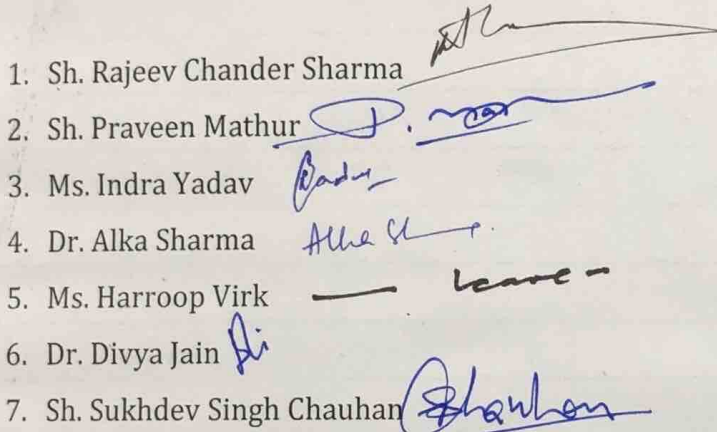 1. Sh. Rajeev Chander Sharma
2. Sh. Praveen Mathur P.
3. Ms. Indra Yadav
4. Dr. Alka Sharma Alka Sh
5. Ms. Harroop Virk — Leave -
6. Dr. Divya Jain
7. Sh. Sukhdev Singh Chauhan Chauhan